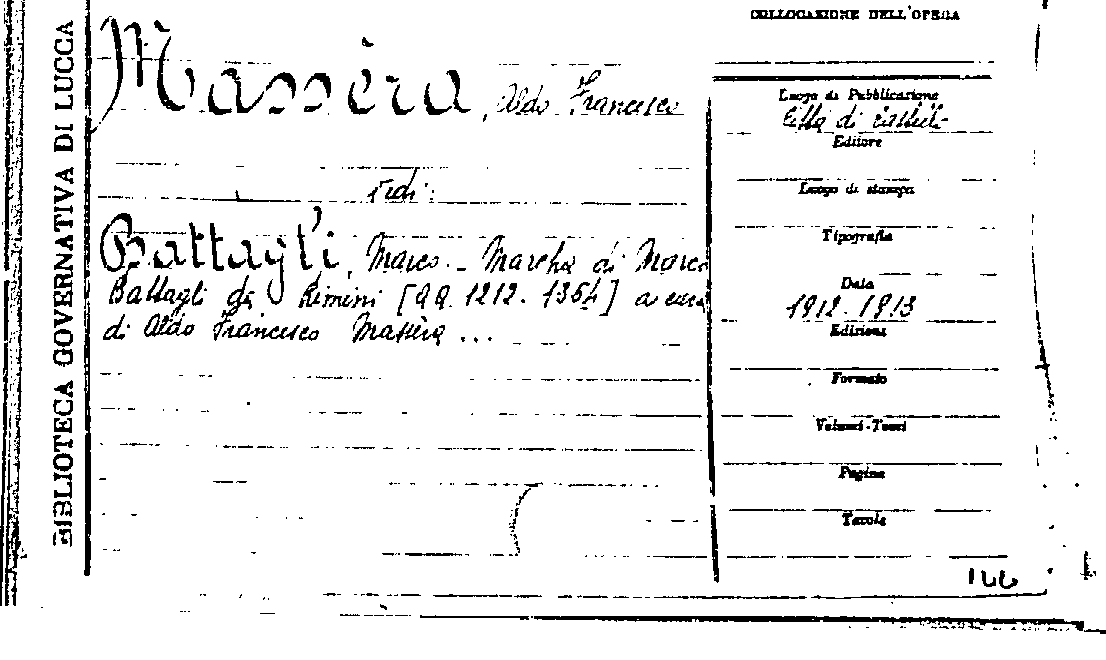 BIBLIOTECA GOVERNATIVA DI LUCCA
Massèra, Aldo Francesco
Vedi:
Battagli, Marco - Marcha di Marco
Battagli da Rimini [aa. 1212-1354] a cura
di Aldo Francesco Massèra ...
COLLOCAZIONE DELL'OPERA
Luogo di Pubblicazione
Città di Castello
Editore
Luogo di stampa
Tipografia
Data
1912-1913
Edizione
Formato
Volumi-Tomi
Pagine
Tavole